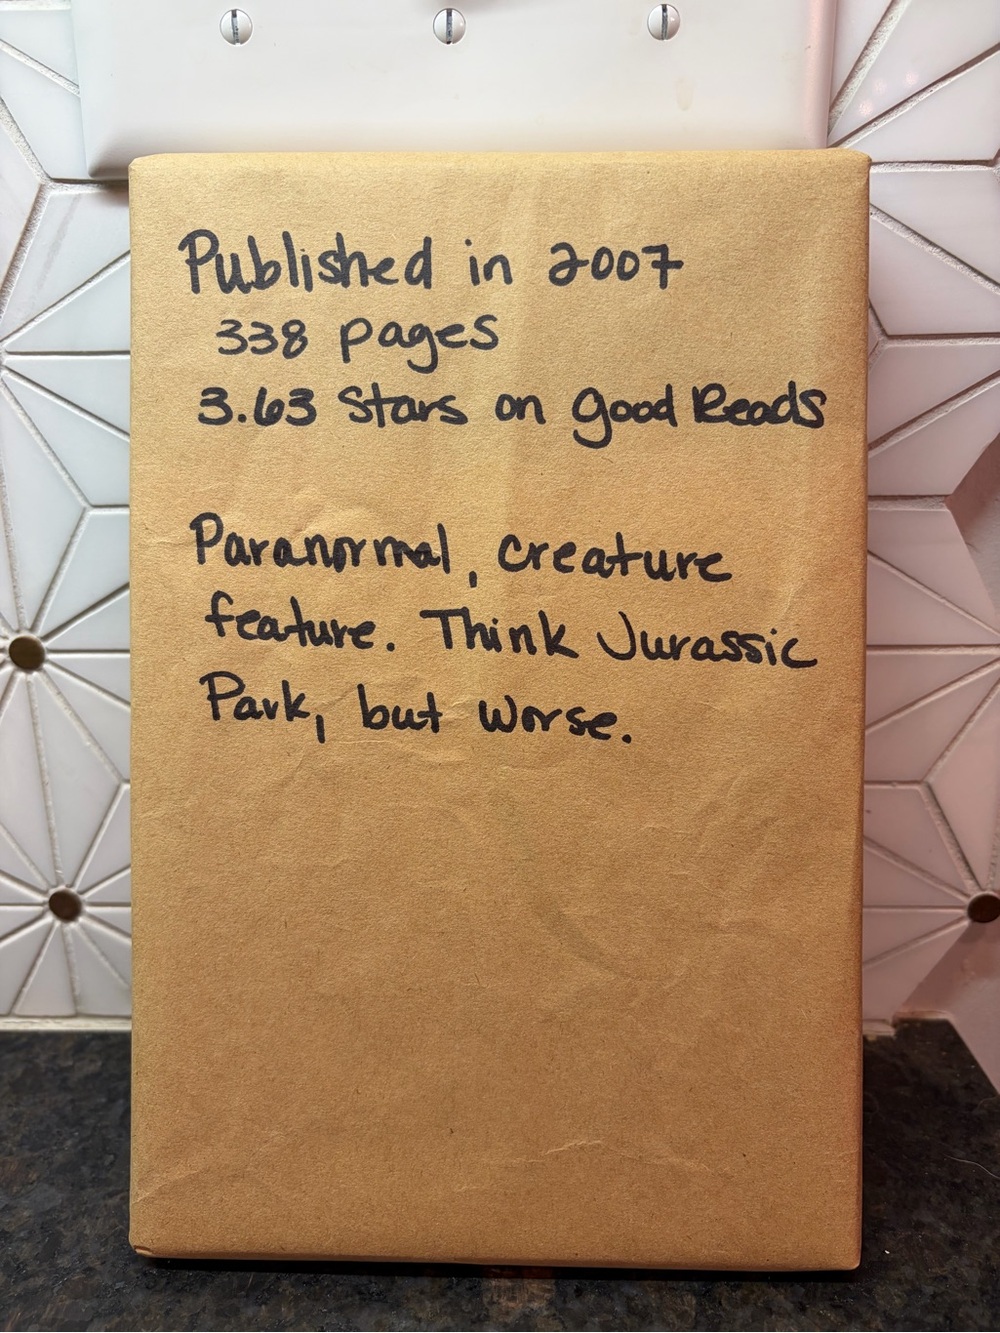 Published in 2007
338 pages
3.63 Stars on good Reads
Paranormal, creature
feature. Think Jurassic
Park, but worse.